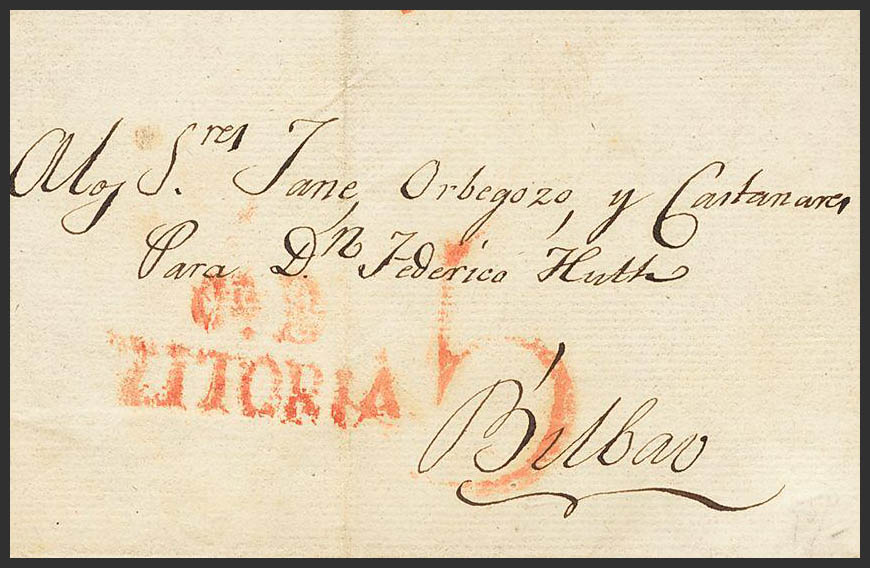 A los S.res Jane, Orbegozo, y Castanares
Para D.n Federico Huth
VITORIA
5
Bilbao